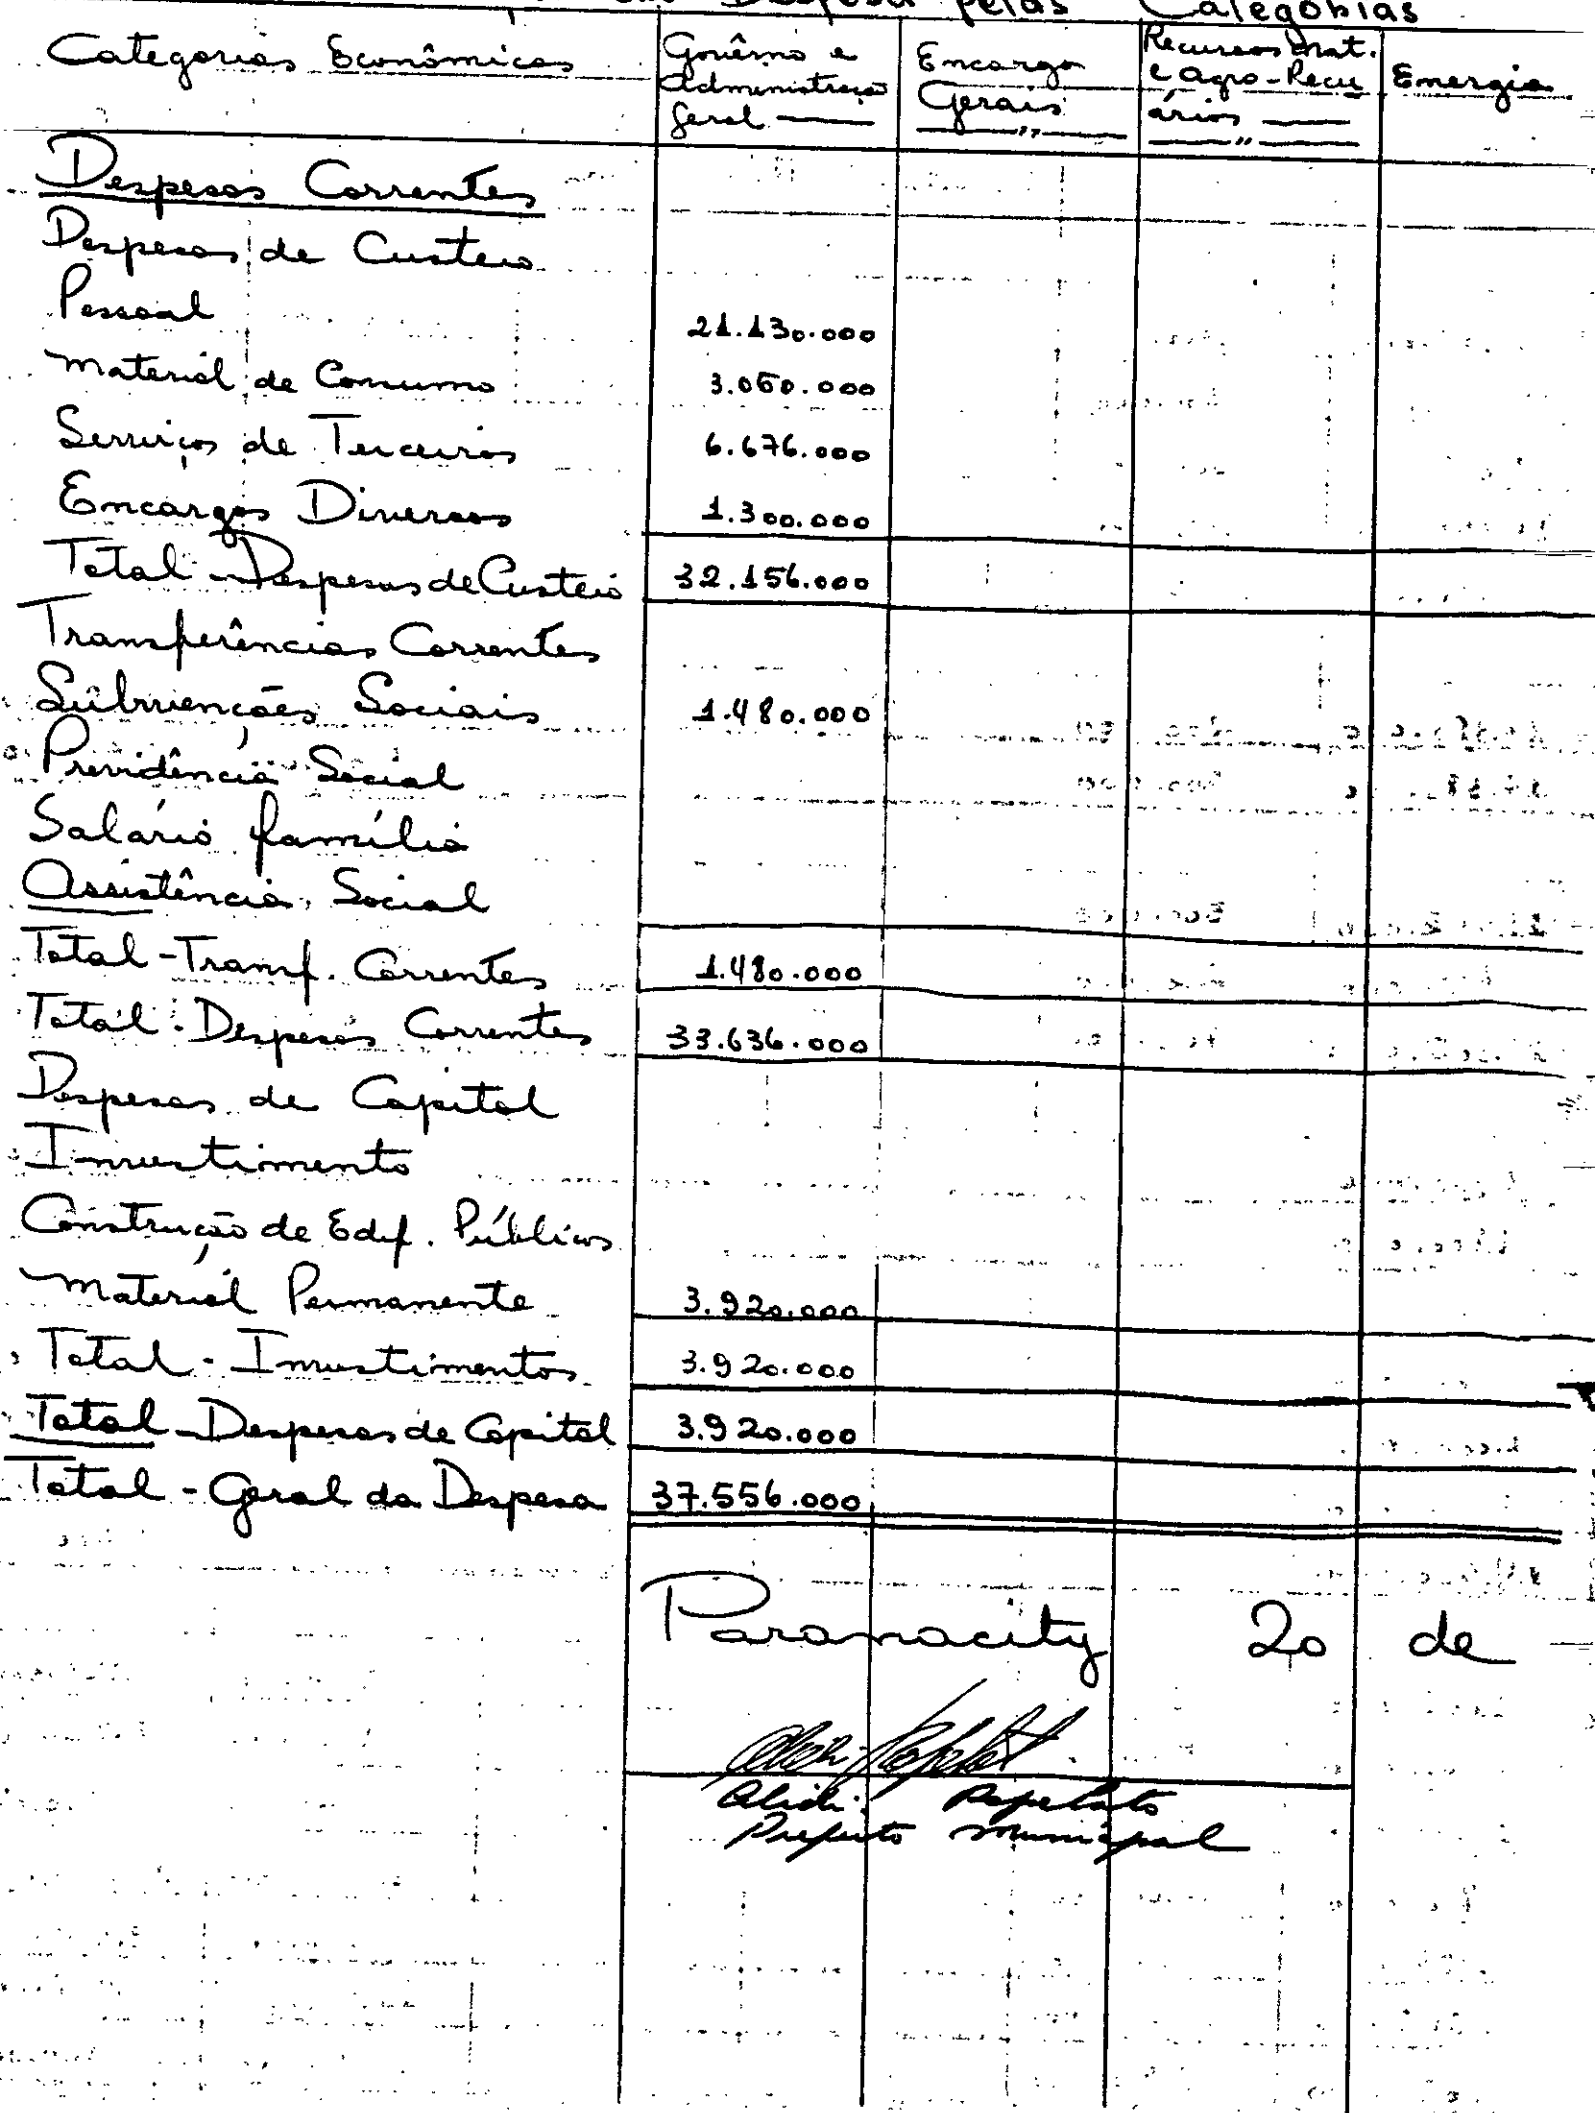 Despesa pelas Categorias
Categorias Econômicas
Govêrno e
Administração
Geral
Encargos
Gerais
Recursos Nat.
e Agro-Pecu
ários
Energia
Despesas Correntes
Despesas de Custeio
Pessoal 21.130.000
Material de Consumo 3.050.000
Serviços de Terceiros 6.676.000
Encargos Diversos 1.300.000
Total - Despesas de Custeio 32.156.000
Transferências Correntes
Subvenções Sociais 1.480.000
Previdência Social
Salário família
Assistência Social
Total - Transf. Correntes 1.480.000
Total - Despesas Correntes 33.636.000
Despesas de Capital
Investimento
Construção de Edif. Públicos
Material Permanente 3.920.000
Total - Investimentos 3.920.000
Total - Despesas de Capital 3.920.000
Total - Geral da Despesa 37.556.000
Paranacity 20 de
Prefeito Municipal